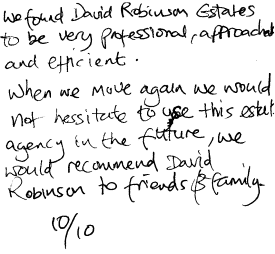 We found David Robinson Estates
to be very professional, approach
and efficient.
When we move again we would
not hessitate to use this estat
agency in the future, we
would recommend David
Robinson to friends & family
10/10